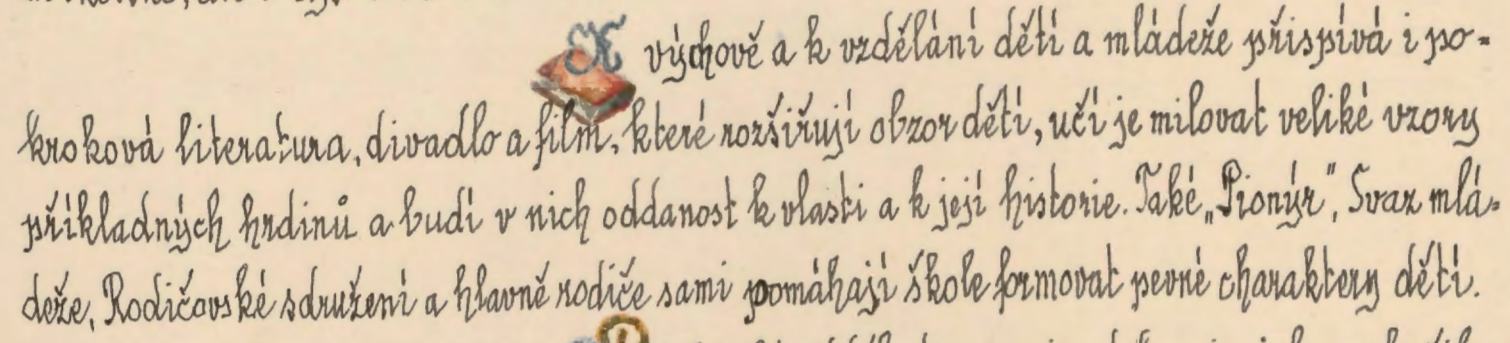 K výchově a k vzdělání dětí a mládeže přispívá i po-
kroková literatura, divadlo a film, které rozšiřují obzor dětí, učí je milovat veliké vzory
příkladných hrdinů a budí v nich oddanost k vlasti a k její historie. Také „Pionýr", Svaz mlá-
deže, Rodičovské sdružení a hlavně rodiče sami pomáhají škole formovat pevné charaktery dětí.